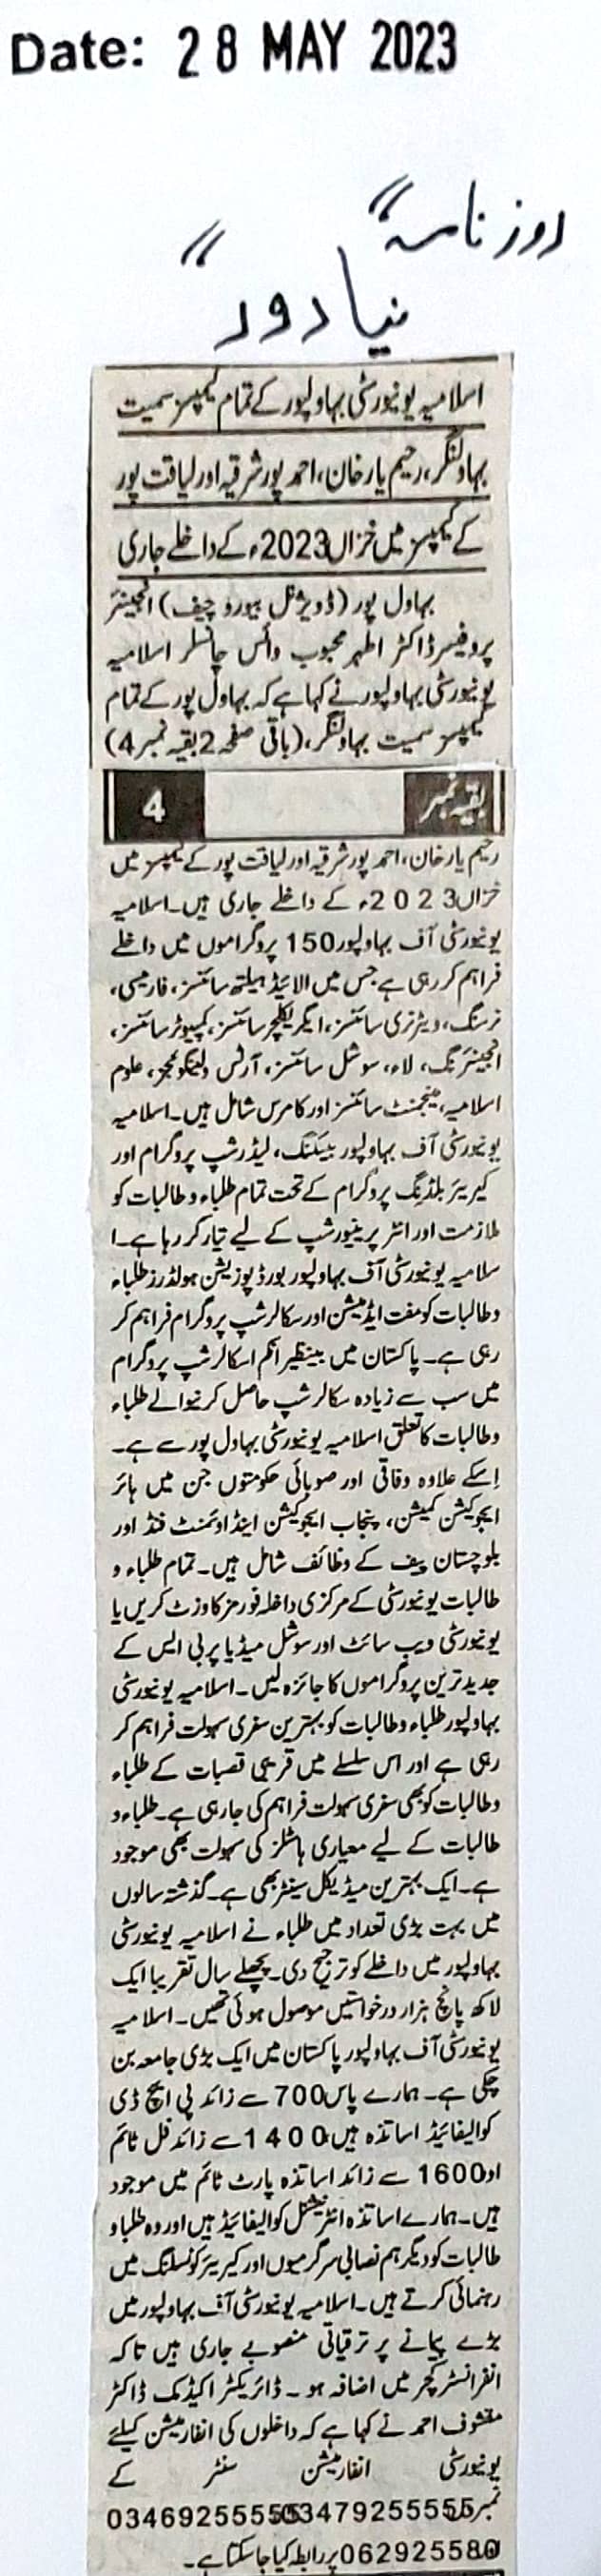 Date: 28 MAY 2023
روزنامہ
"نیا دور"
اسلامیہ یونیورسٹی بہاولپور کے تمام کیمپسز سمیت
بہاولنگر، رحیم یار خان، احمد پور شرقیہ اور لیاقت پور
کے کیمپسز میں خزاں 2023ء کے داخلے جاری
بہاول پور (ڈویژنل بیورو چیف) انجینئر
پروفیسر ڈاکٹر اطہر محبوب وائس چانسلر اسلامیہ
یونیورسٹی بہاولپور نے کہا ہے کہ بہاول پور کے تمام
کیمپسز سمیت بہاولنگر، (باقی صفحہ 2 بقیہ نمبر 4)
بقیہ نمبر 4
رحیم یار خان، احمد پور شرقیہ اور لیاقت پور کے کیمپسز میں
خزاں 2023ء کے داخلے جاری ہیں۔ اسلامیہ
یونیورسٹی آف بہاولپور 150 پروگراموں میں داخلے
فراہم کر رہی ہے جس میں الائیڈ ہیلتھ سائنسز، فارمیسی،
نرسنگ، ویٹرنری سائنسز، ایگریکلچر سائنسز، کمپیوٹر سائنسز،
انجینئرنگ، لاء، سوشل سائنسز، آرٹس ولینگوئجز، علوم
اسلامیہ، مینجمنٹ سائنسز اور کامرس شامل ہیں۔ اسلامیہ
یونیورسٹی آف بہاولپور بیسکنگ، لیڈرشپ پروگرام اور
کیریئر بلڈنگ پروگرام کے تحت تمام طلباء و طالبات کو
ملازمت اور انٹر پرینیورشپ کے لیے تیار کر رہا ہے۔ ا
سلامیہ یونیورسٹی آف بہاولپور بورڈ پوزیشن ہولڈرز طلباء
وطالبات کو مفت ایڈمیشن اور سکالرشپ پروگرام فراہم کر
رہی ہے۔ پاکستان میں بینظیر انکم اسکالرشپ پروگرام
میں سب سے زیادہ سکالرشپ حاصل کرنیوالے طلباء
وطالبات کا تعلق اسلامیہ یونیورسٹی بہاول پور سے ہے۔
اسکے علاوہ وفاقی اور صوبائی حکومتوں جن میں ہائر
ایجوکیشن کمیشن، پنجاب ایجوکیشن اینڈاومنٹ فنڈ اور
بلوچستان پیف کے وظائف شامل ہیں۔ تمام طلباء و
طالبات یونیورسٹی کے مرکزی داخلہ فورمز کا وزٹ کریں یا
یونیورسٹی ویب سائٹ اور سوشل میڈیا پر بی ایس کے
جدید ترین پروگراموں کا جائزہ لیں۔ اسلامیہ یونیورسٹی
بہاولپور طلباء وطالبات کو بہترین سفری سہولت فراہم کر
رہی ہے اور اس سلسلے میں قریبی قصبات کے طلباء
وطالبات کو بھی سفری سہولت فراہم کی جا رہی ہے۔ طلباء و
طالبات کے لیے معیاری ہاسٹلز کی سہولت بھی موجود
ہے۔ ایک بہترین میڈیکل سینٹر بھی ہے۔ گذشتہ سالوں
میں بہت بڑی تعداد میں طلباء نے اسلامیہ یونیورسٹی
بہاولپور میں داخلے کو ترجیح دی۔ پچھلے سال تقریبا ایک
لاکھ پانچ ہزار درخواستیں موصول ہوئی تھیں۔ اسلامیہ
یونیورسٹی آف بہاولپور پاکستان میں ایک بڑی جامعہ بن
چکی ہے۔ ہمارے پاس 700 سے زائد پی ایچ ڈی
کوالیفائیڈ اساتذہ ہیں 1400 سے زائد فل ٹائم
او 1600 سے زائد اساتذہ پارٹ ٹائم میں موجود
ہیں۔ ہمارے اساتذہ انٹرنیشنل کوالیفائیڈ ہیں اور وہ طلبا و
طالبات کو دیگر ہم نصابی سرگرمیوں اور کیریئر کونسلنگ میں
رہنمائی کرتے ہیں۔ اسلامیہ یونیورسٹی آف بہاولپور میں
بڑے پیمانے پر ترقیاتی منصوبے جاری ہیں تاکہ
انفراسٹرکچر میں اضافہ ہو۔ ڈائریکٹر اکیڈمک ڈاکٹر
احمد نے کہا ہے کہ داخلوں کی انفارمیشن کیلئے
یونیورسٹی انفارمیشن سنٹر کے
نمبرز 03479255555 03469255555
062925580 پر رابطہ کیا جا سکتا ہے۔